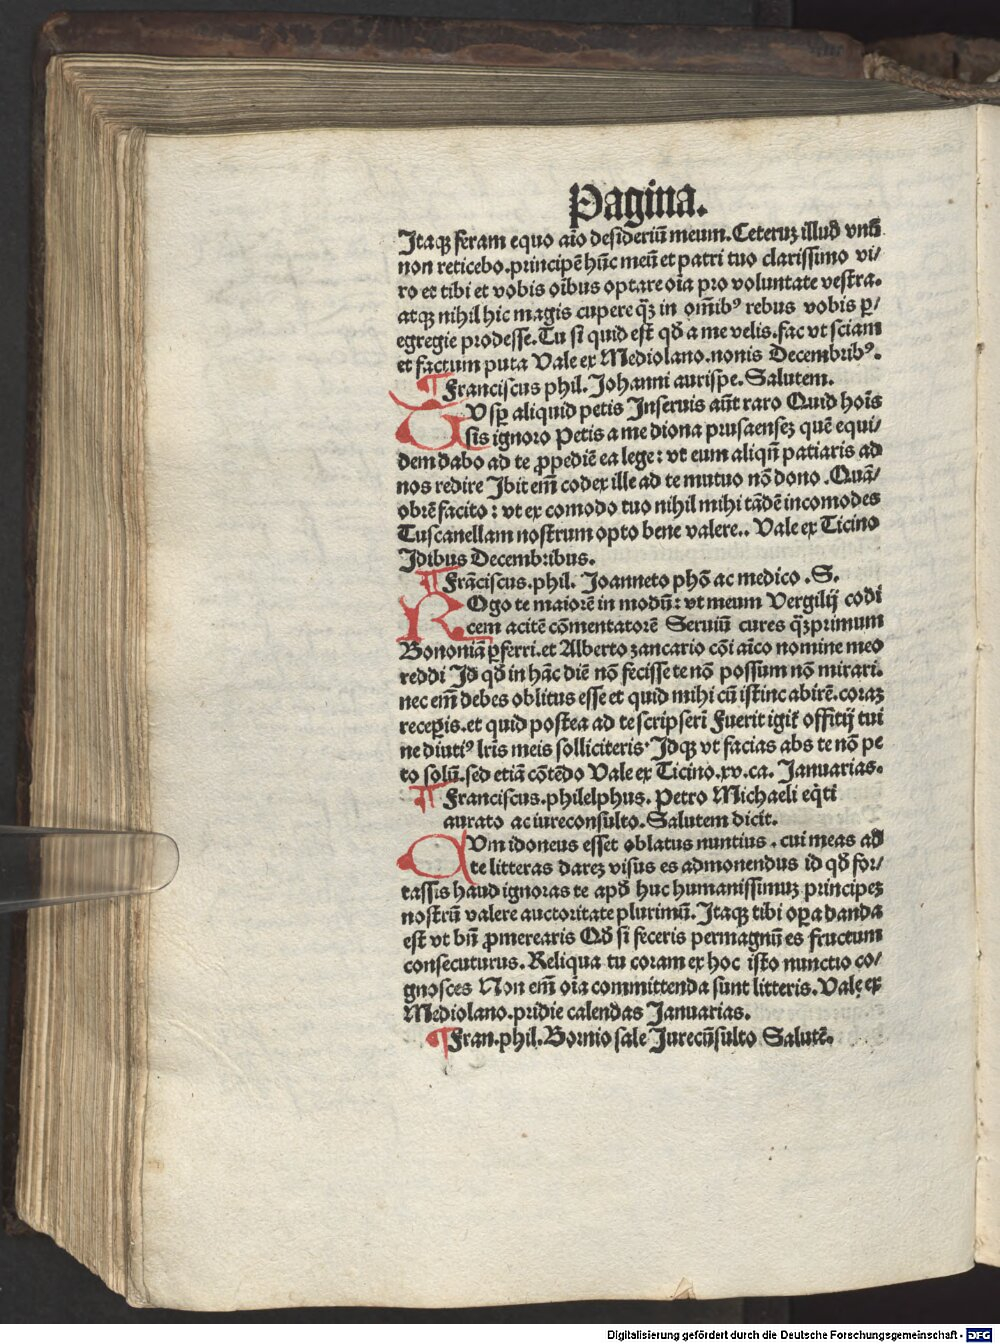 Pagina.
Itaqꝫ feram equo aīo desideriū meum. Ceteruꝫ illud vnū
non reticebo. principē hūc meū et patri tuo clarissimo vi/
ro et tibi et vobis oībus optare oīa pro voluntate vestra.
atqꝫ nihil hic magis cupere qꝫ̄ in om̄ibꝰ rebus vobis ꝑ/
egregie prodesse. Tu si quid est qd̄ a me velis. fac vt sciam
et factum puta Vale ex Mediolano. nonis Decembribꝰ.
¶ Franciscus phil. Johanni aurispe. Salutem.
TVsꝑ aliquid petis Inseruis aūt raro Quid hoīs
sis ignoro Petis a me diona prusaenseꝫ quē equi/
dem dabo ad te ꝓpediē ea lege: vt eum aliqn̄ patiaris ad
nos redire Ibit em̄ codex ille ad te mutuo nō dono. Quā/
obrē facito: vt ex comodo tuo nihil mihi tādē incomodes
Tuscanellam nostrum opto bene valere.. Vale ex Ticino
Idibus Decembribus.
¶ Frāciscus. phil. Joanneto phō ac medico. S.
ROgo te maiorē in modū: vt meum Vergilij codi
cem acitē cōmentatorē Seruiū cures qꝫ̄primum
Bononiā ꝑferri. et Alberto zancario cōi aīco nomine meo
reddi Id qd̄ in hāc diē nō fecisse te nō possum nō mirari.
nec em̄ debes oblitus esse et quid mihi cū istinc abirē. coraꝫ
receꝑis. et quid postea ad te scripseri Fuerit igit᷑ offitij tui
ne diutiꝰ lris meis solliciteris. Idqꝫ vt facias abs te nō pe
to solū. sed etiā cōtēdo Vale ex Ticino. xv. ca. Januarias.
¶ Franciscus. philelphus. Petro Michaeli eq̄ti
aurato ac iureconsulto. Salutem dicit.
CVm idoneus esset oblatus nuntius. cui meas ad
te litteras dareꝫ visus es admonendus id qd̄ for/
tassis haud ignoras te apd̄ huc humanissimuꝫ principeꝫ
nostrū valere auctoritate plurimū. Itaqꝫ tibi oꝑa danda
est vt bn̄ ꝓmerearis Qd̄ si feceris permagnū es fructum
consecuturus. Reliqua tu coram ex hoc isto nunctio co/
gnosces Non em̄ oīa committenda sunt litteris. Vale ex
Mediolano. pridie calendas Januarias.
¶ Fran. phil. Bornio sale Jurecūsulto Salutē.
Digitalisierung gefördert durch die Deutsche Forschungsgemeinschaft - DFG